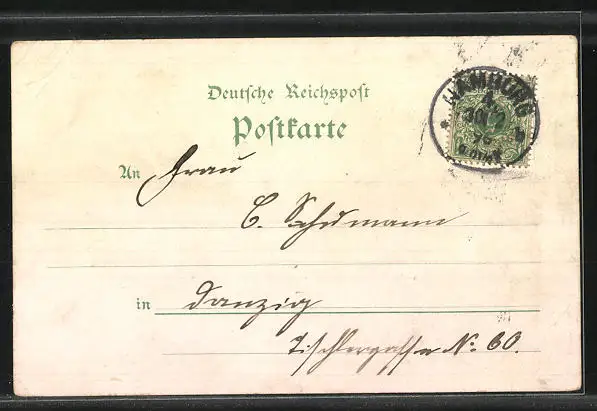 Deutsche Reichspost
Postkarte
HAMBURG
An Frau
C. Schumann
in Danzig
Tischlergasse No. 60.